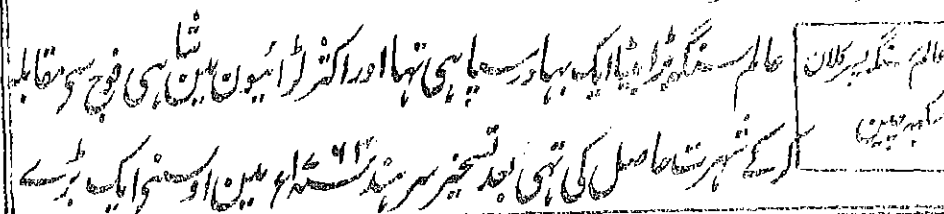 عالم سنگہ پسر کلان
صاحب سنگہ
عالم سنگہ بڑا بیٹا ایک بہادر سپاہی تہا اور اکثر لڑائیون مین شاہی فوج سے مقابلہ
کرکے شہرت حاصل کی تہی بعد تسخیر سرہند ۱۷۶۳ء مین اوسنے ایک بڑے